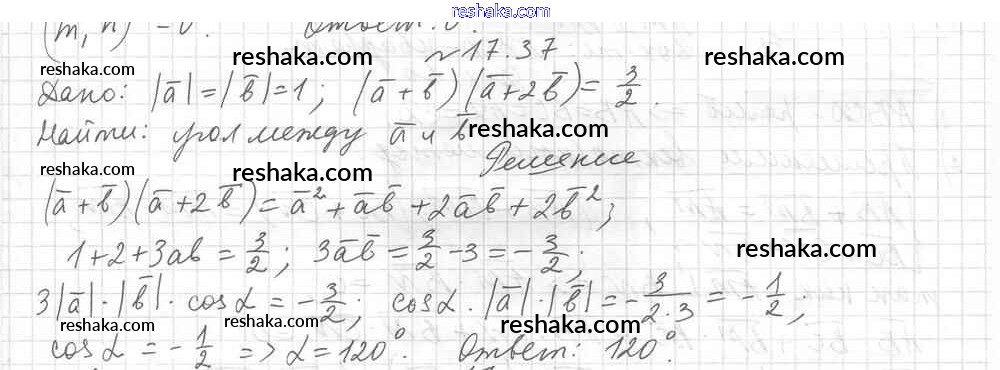 reshaka.com
(m, n) = 0. Ответ: 0.
reshaka.com reshaka.com
№ 17.37
reshaka.com reshaka.com
Дано: |a̅| = |b̅| = 1; (a̅ + b̅)(a̅ + 2b̅) = 3/2.
Найти: угол между a̅ и b̅
reshaka.com
Решение
reshaka.com reshaka.com
(a̅ + b̅)(a̅ + 2b̅) = a̅² + a̅b̅ + 2a̅b̅ + 2b̅²;
1 + 2 + 3ab = 3/2; 3a̅b̅ = 3/2 - 3 = - 3/2;
reshaka.com
3|a̅|·|b̅|· cos α = - 3/2; cos α · |a̅|·|b̅| = - 3/(2·3) = - 1/2;
reshaka.com reshaka.com reshaka.com
cos α = - 1/2 => α = 120°. Ответ: 120°.